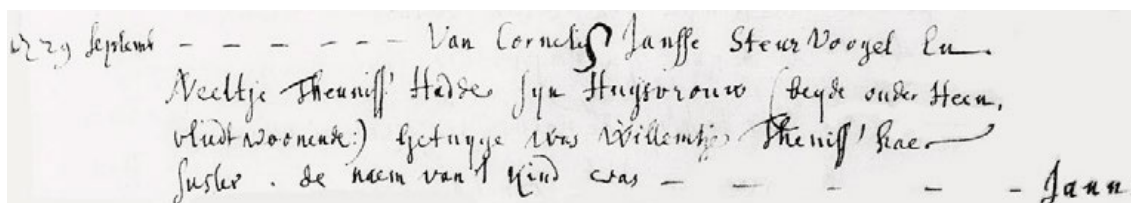 29 Septemb - - - - - - Van Cornelis Jansse Steur Voogel En
Neeltje Theuniss' Hadde syn Huijsvrouw (beyde onder Heen,
vliedt woonende:) Getuyge was Willemtje Theniss' haer
suster . de naem van 't Kind was - - - - - Jann